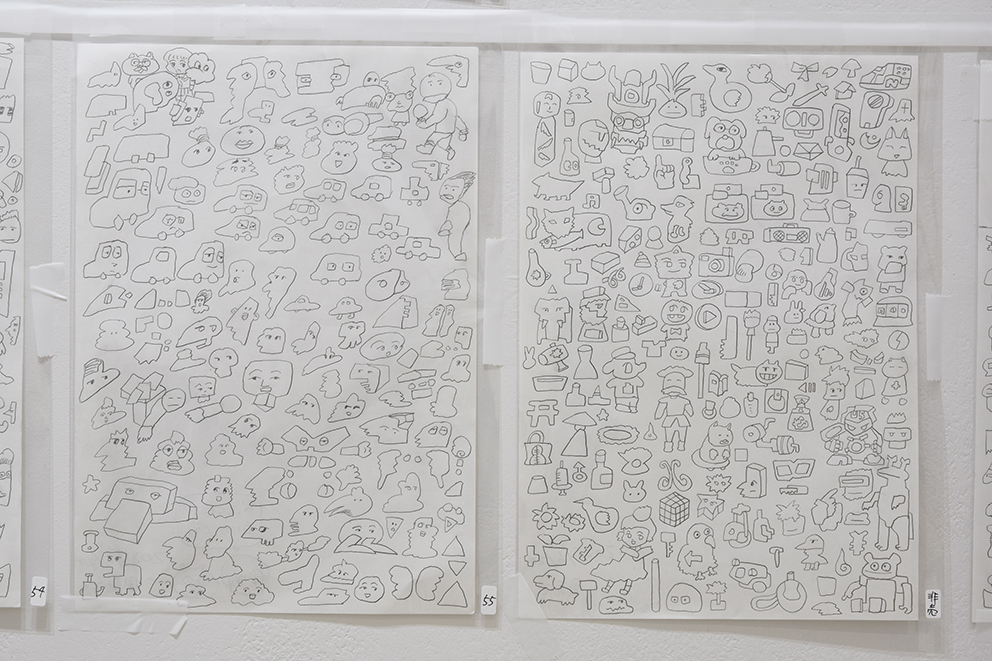 54
55
非売